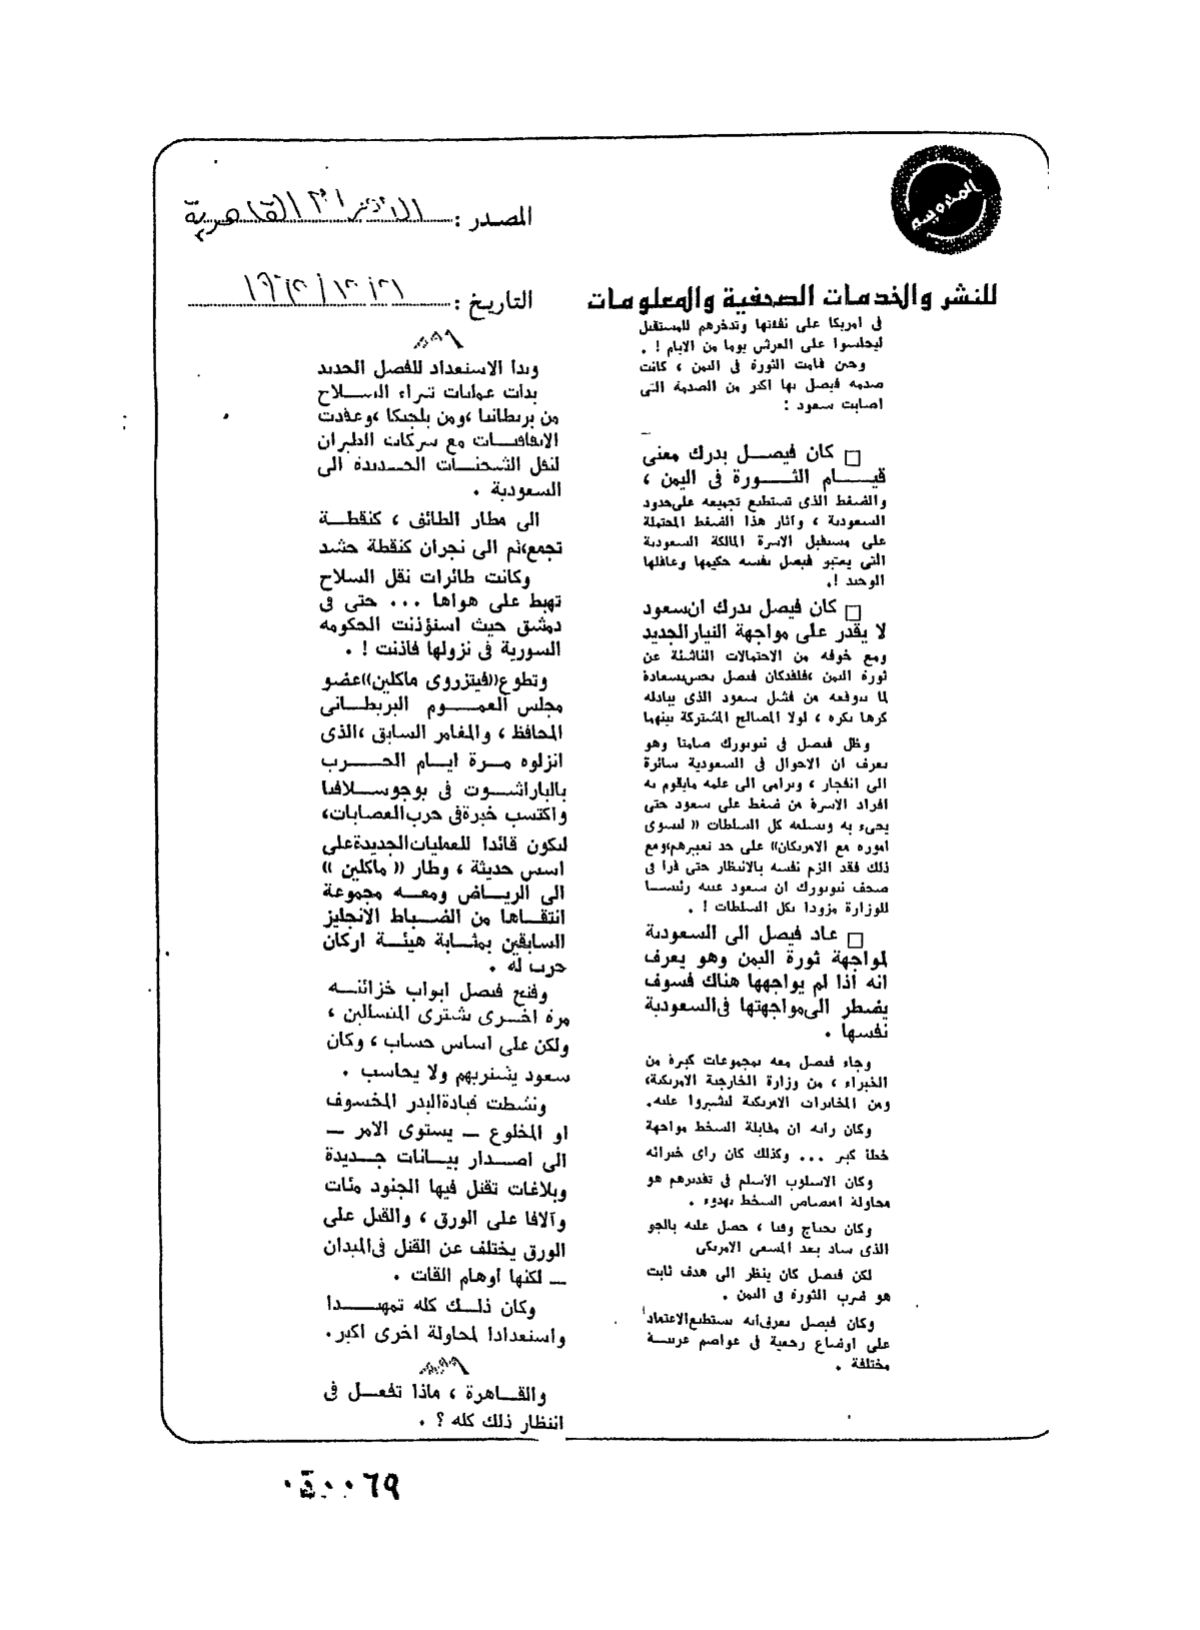 المصدر :
القاهرية
التاريخ :
للنشر والخدمات الصحفية والمعلومات
فى امريكا على نفقتها وتدخرهم للمستقبل
ليجلسوا على العرش يوما من الايام ! .
وحين قامت الثورة فى اليمن ، كانت
صدمة فيصل بها اكبر من الصدمة التى
اصابت سعود :
□ كان فيصــل يدرك معنى
قيــام الثــورة فى اليمن ،
والضغط الذى تستطيع تجميعه على حدود
السعودية ، وآثار هذا الضغط المحتملة
على مستقبل الاسرة المالكة السعودية
التى يعتبر فيصل نفسه حكيمها وعاقلها
الوحيد !.
□ كان فيصل يدرك ان سعود
لا يقدر على مواجهة التيار الجديد
ومع خوفه من الاحتمالات الناشئة عن
ثورة اليمن ، فلقد كان فيصل يحس بسعادة
لما يتوقعه من فشل سعود الذى يبادله
كرها بكره ، لولا المصالح المشتركة بينهما
وظل فيصل فى نيويورك صامتا وهو
يعرف ان الاحوال فى السعودية سائرة
الى انفجار ، وترامى الى علمه مايقوم به
افراد الاسرة من ضغط على سعود حتى
يجىء به ويسلمه كل السلطات « ليسوى
اموره مع الامريكان» على حد تعبيرهم، ومع
ذلك فقد الزم نفسه بالانتظار حتى قرأ فى
صحف نيويورك ان سعود عينه رئيســا
للوزارة مزودا بكل السلطات ! .
□ عاد فيصل الى السعودية
لمواجهة ثورة اليمن وهو يعرف
انه اذا لم يواجهها هناك فسوف
يضطر الى مواجهتها فى السعودية
نفسها .
وجاء فيصل معه بمجموعات كبيرة من
الخبراء ، من وزارة الخارجية الامريكية،
ومن المخابرات الامريكية ليشيروا عليه.
وكان رأيه ان مقابلة السخط مواجهة
خطأ كبير ... وكذلك كان رأى خبرائه
وكان الاسلوب الأسلم فى تقديرهم هو
محاولة امتصاص السخط بهدوء .
وكان يحتاج وقتا ، حصل عليه بالجو
الذى ساد بعد المسعى الامريكى
لكن فيصل كان ينظر الى هدف ثابت
هو ضرب الثورة فى اليمن .
وكان فيصل يعرف أنه يستطيع الاعتماد
على اوضاع رجعية فى عواصم عربيــة
مختلفة .
وبدأ الاستعداد للفصل الجديد
بدأت عمليات شراء الســلاح
من بريطانيا ، ومن بلجيكا ، وعقدت
الاتفاقــات مع شركات الطيران
لنقل الشحنــات الجــديدة الى
السعودية .
الى مطار الطائف ، كنقطــة
تجمع، ثم الى نجران كنقطة حشد
وكانت طائرات نقل السلاح
تهبط على هواها ... حتى فى
دمشق حيث استؤذنت الحكومة
السورية فى نزولها فأذنت ! .
وتطوع «فيتزروى ماكلين» عضو
مجلس العمــوم البريطــانى
المحافظ ، والمغامر السابق ، الذى
انزلوه مــرة ايــام الحــرب
بالباراشــوت فى يوجوســلافيا
واكتسب خبرة فى حرب العصابات،
ليكون قائدا للعمليات الجديدة على
اسس حديثة ، وطار « ماكلين »
الى الريــاض ومعــه مجموعة
انتقــاها من الضبــاط الانجليز
السابقين بمثــابة هيئــة اركان
حرب له .
وفتح فيصل ابواب خزائنــه
مرة اخــرى يشترى المتسللين ،
ولكن على اساس حساب ، وكان
سعود يشتريهم ولا يحاسب .
ونشطت قيادة البدر المخسوف
او المخلوع — يستوى الامر —
الى اصــدار بيــانات جــديدة
وبلاغات تقتل فيها الجنود مئات
وآلافا على الورق ، والقتل على
الورق يختلف عن القتل فى الميدان
— لكنها أوهام القات .
وكان ذلــك كله تمهيــدا
واستعدادا لمحاولة اخرى اكبر.
والقــاهرة ، ماذا تفعــل فى
انتظار ذلك كله ؟ .